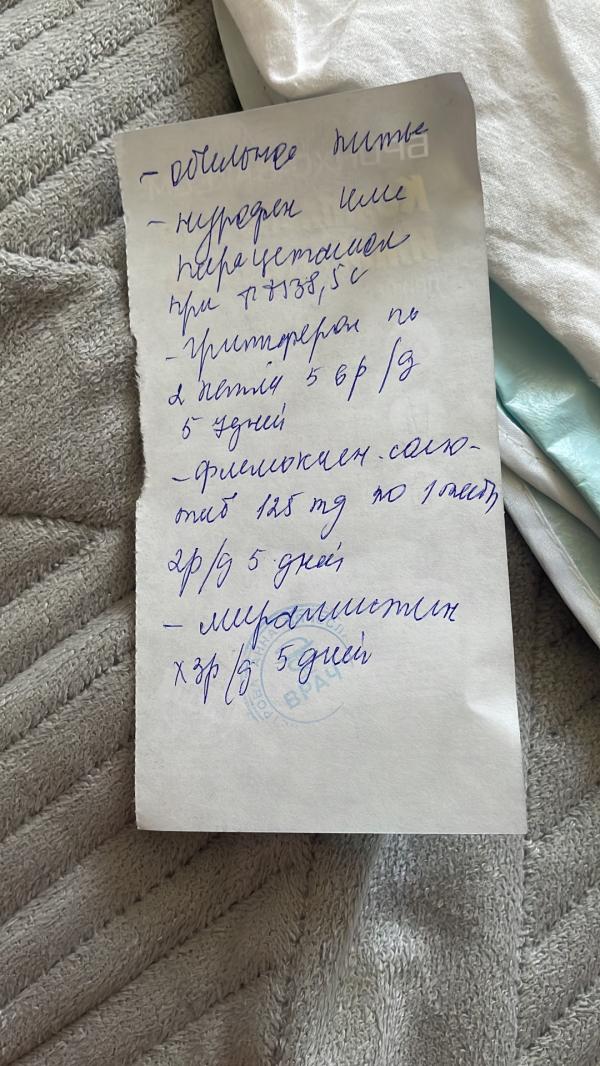 - обильное питье
- нурофен или
парацетамол
при t>38,5с
- гриппферон по
2 капли 5 вр/д
5 дней
- флемоксин-солю-
таб 125 mg по 1 табл
2р/д 5 дней
- мирамистин
х 3р/д 5 дней
ВРАЧ